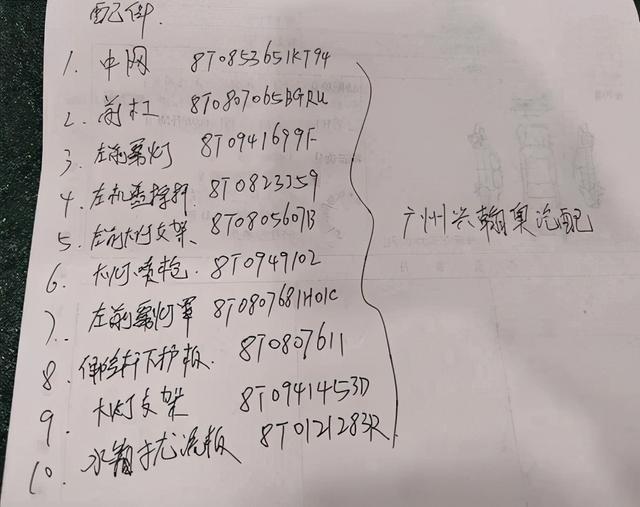 配件.
1. 中网 8T0853651KT94
2. 前杠 8T0807065BGRU
3. 左前雾灯 8T0941699F
4. 左机盖撑杆 8T0823359
5. 左前大灯支架 8T0805607B
6. 大灯喷枪. 8T0949102
7. 左前雾灯罩 8T0807681H01C
8. 保险杠下护板. 8T0807611
9. 大灯支架 8T0941453D
10. 水箱扰流板 8T0121283R
广州兴翰奥汽配